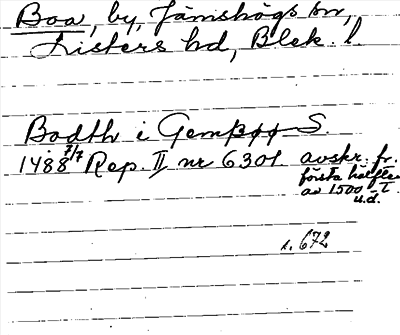 Boa, by, Jämshögs sn,
Listers hd, Blek. l.
Bodth i Gemsøø S.
1488 7/7 Rep. II nr 6301 avskr. fr.
första hälften
av 1500-t.
u.d.
s. 672